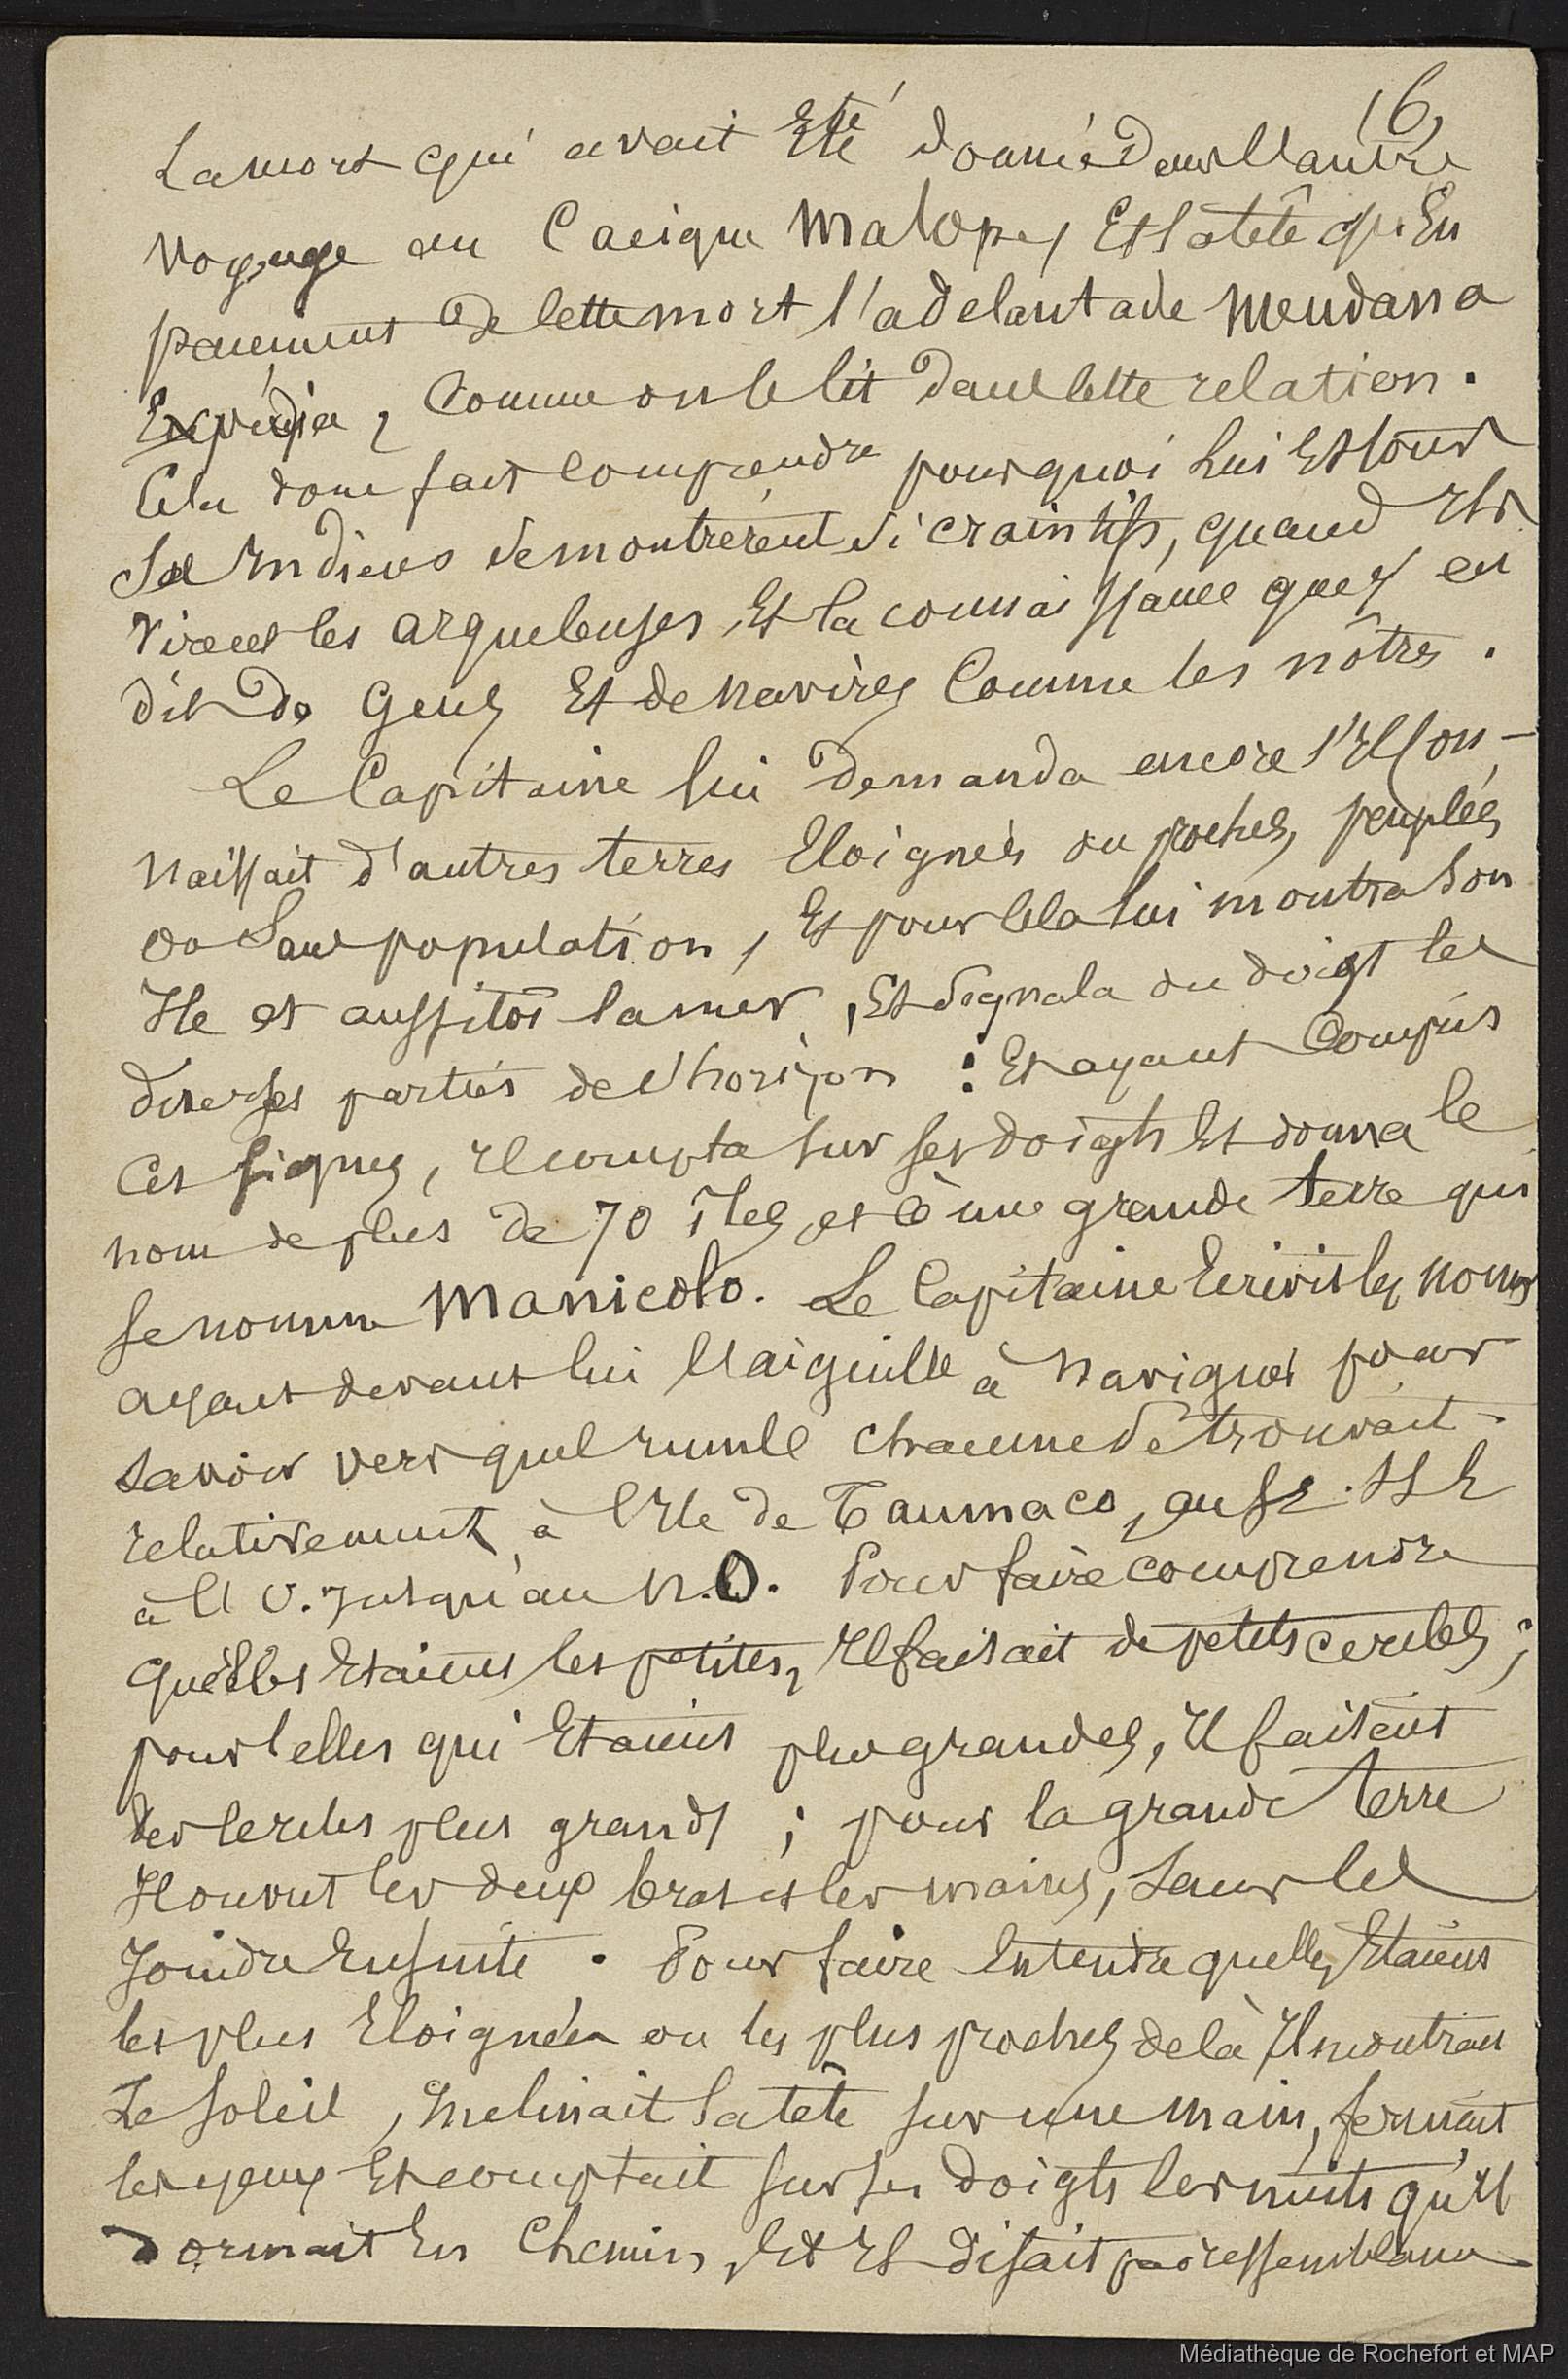 16,
La mort qui avait Eté donnée Dans l'autre
voyage au Cacique Malope, Et la tête qu'En
paiement De cette mort l'adelantade Mendana
Expédia, Comme on le lit Dans cette relation.
Cela donc fait comprendre pourquoi lui Et tous
Ses Indiens se montrèrent si craintifs, quand Ils
virent les arquebuses, Et la connaissance que
dit De Gens Et de Navires Comme les nôtres.
Le Capitaine lui Demanda encore s'Il con-
naissait d'autres terres Eloignées ou proches, peuplées
ou Sans population, Et pour Cela lui montra Son
Ile et aussitôt la mer, Et Signala du doigt les
diverses parties de l'horizon : Et ayant Compris
Ces signes, Il compta sur ses doigts Et donna le
nom de plus De 70 îles, et à une grande terre qui
se nomme Manicolo. Le Capitaine Ecrivit les noms
ayant devant lui l'aiguille à Naviguer pour
savoir vers quel rumb chacune Se trouvait
relativement à l'Ile de Taumaco, au SE. SSE
à l'O. Jusqu'au N.O. Pour faire comprendre
Quelles Etaient les petites, Il faisait de petits cercles;
pour Celles qui Etaient plus grandes, Il faisait
des Cercles plus grands ; pour la grande Terre
Il ouvrit les deux bras et les mains, Sans les
Joindre Ensuite. Pour faire Entendre quelles Etaient
les plus Eloignées ou les plus proches de là Il montrait
Le Soleil, Inclinait la tête sur une main, fermait
les yeux Et comptait sur ses Doigts les nuits qu'Il
Dormait En Chemin, Et Il disait par ressemblance
Médiathèque de Rochefort et MAP